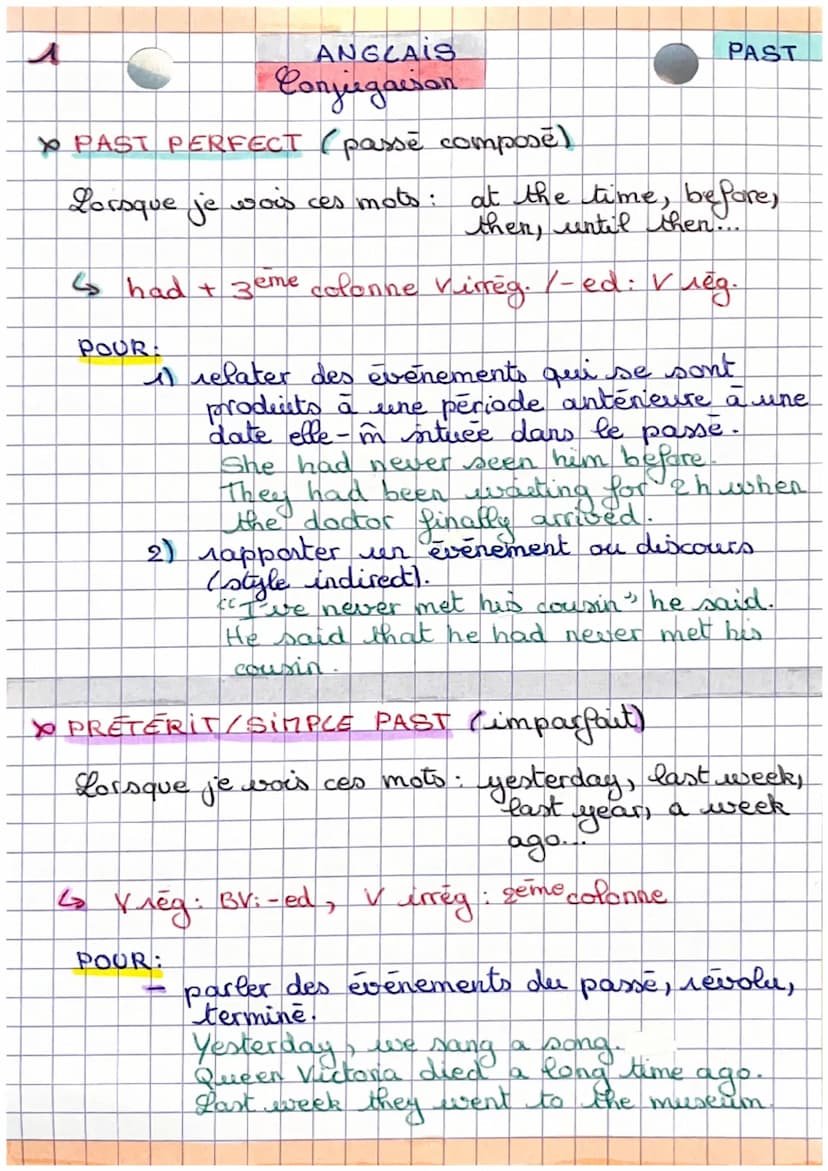 1
ANGLAIS
PAST
Conjugaison
PAST PERFECT (passé composé)
Lorsque je vois ces mots : at the time, before,
then, until then...
↳ had + 3ème colonne V irrég. /-ed: V rég.
POUR:
1) relater des événements qui se sont
produits à une période antérieure à une
date elle-m̂ située dans le passé.
She had never seen him before.
They had been waiting for 2h when
the doctor finally arrived.
2) rapporter un événement ou discours
(style indirect).
"I've never met his cousin" he said.
He said that he had never met his
cousin.
PRÉTÉRIT/SIMPLE PAST (imparfait)
Lorsque je vois ces mots : yesterday, last week,
last year, a week
ago...
↳ V rég: BV:-ed, V irrég : 2ème colonne
POUR:
- parler des événements du passé, révolu,
terminé.
Yesterday, we sang a song.
Queen Victoria died a long time ago.
Last week they went to the museum.